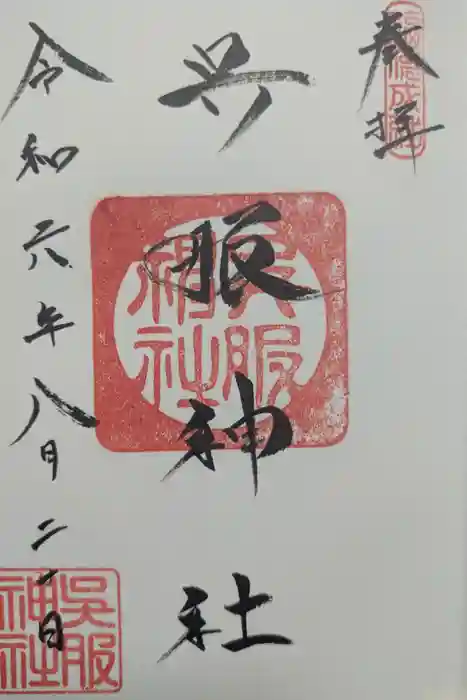 奉拝
成就
呉服神社
吳服
神社
令和六年八月二十日
吳服
神社